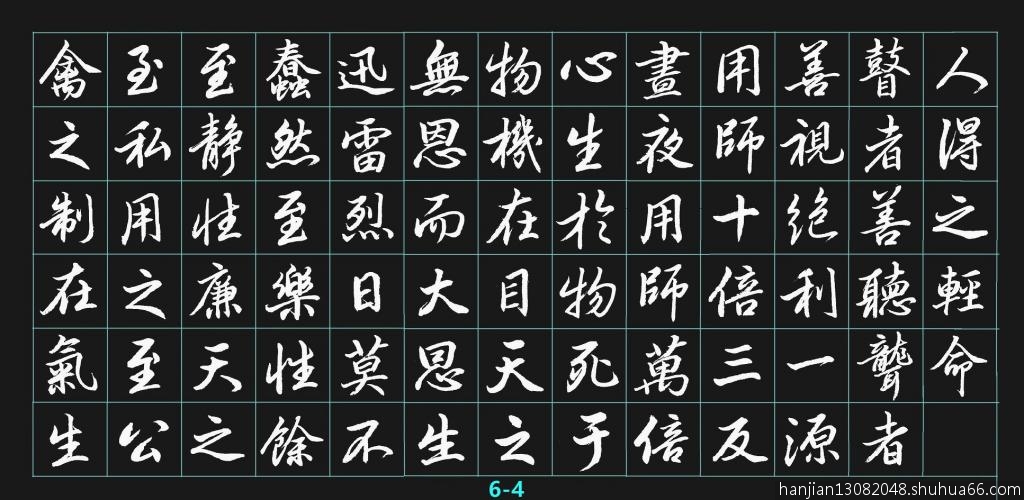 人得之輕命
瞽者善聽聾者
善視絕利一源
用師十倍三反
晝夜用師萬倍
心生於物死于
物機在目天之
無恩而大恩生
迅雷烈日莫不
蠢然至樂性餘
至静性廉天之
至私用之至公
禽之制在氣生
6-4
hanjian13082048.shuhua66.com